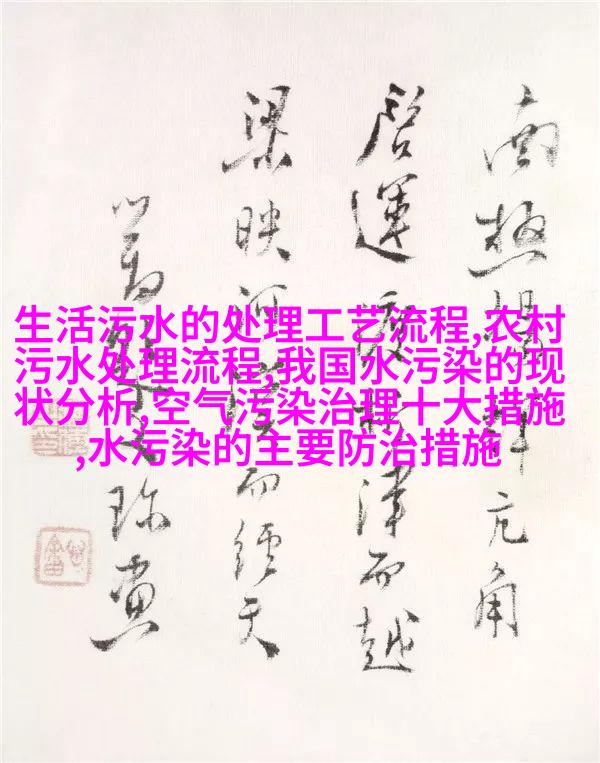 生活污水的处理工艺流程,农村
污水处理流程,我国水污染的现
状分析,空气污染治理十大措施
,水污染的主要防治措施
南極 亢角
啓運 津而越
梁映河漢而經天
珍賞